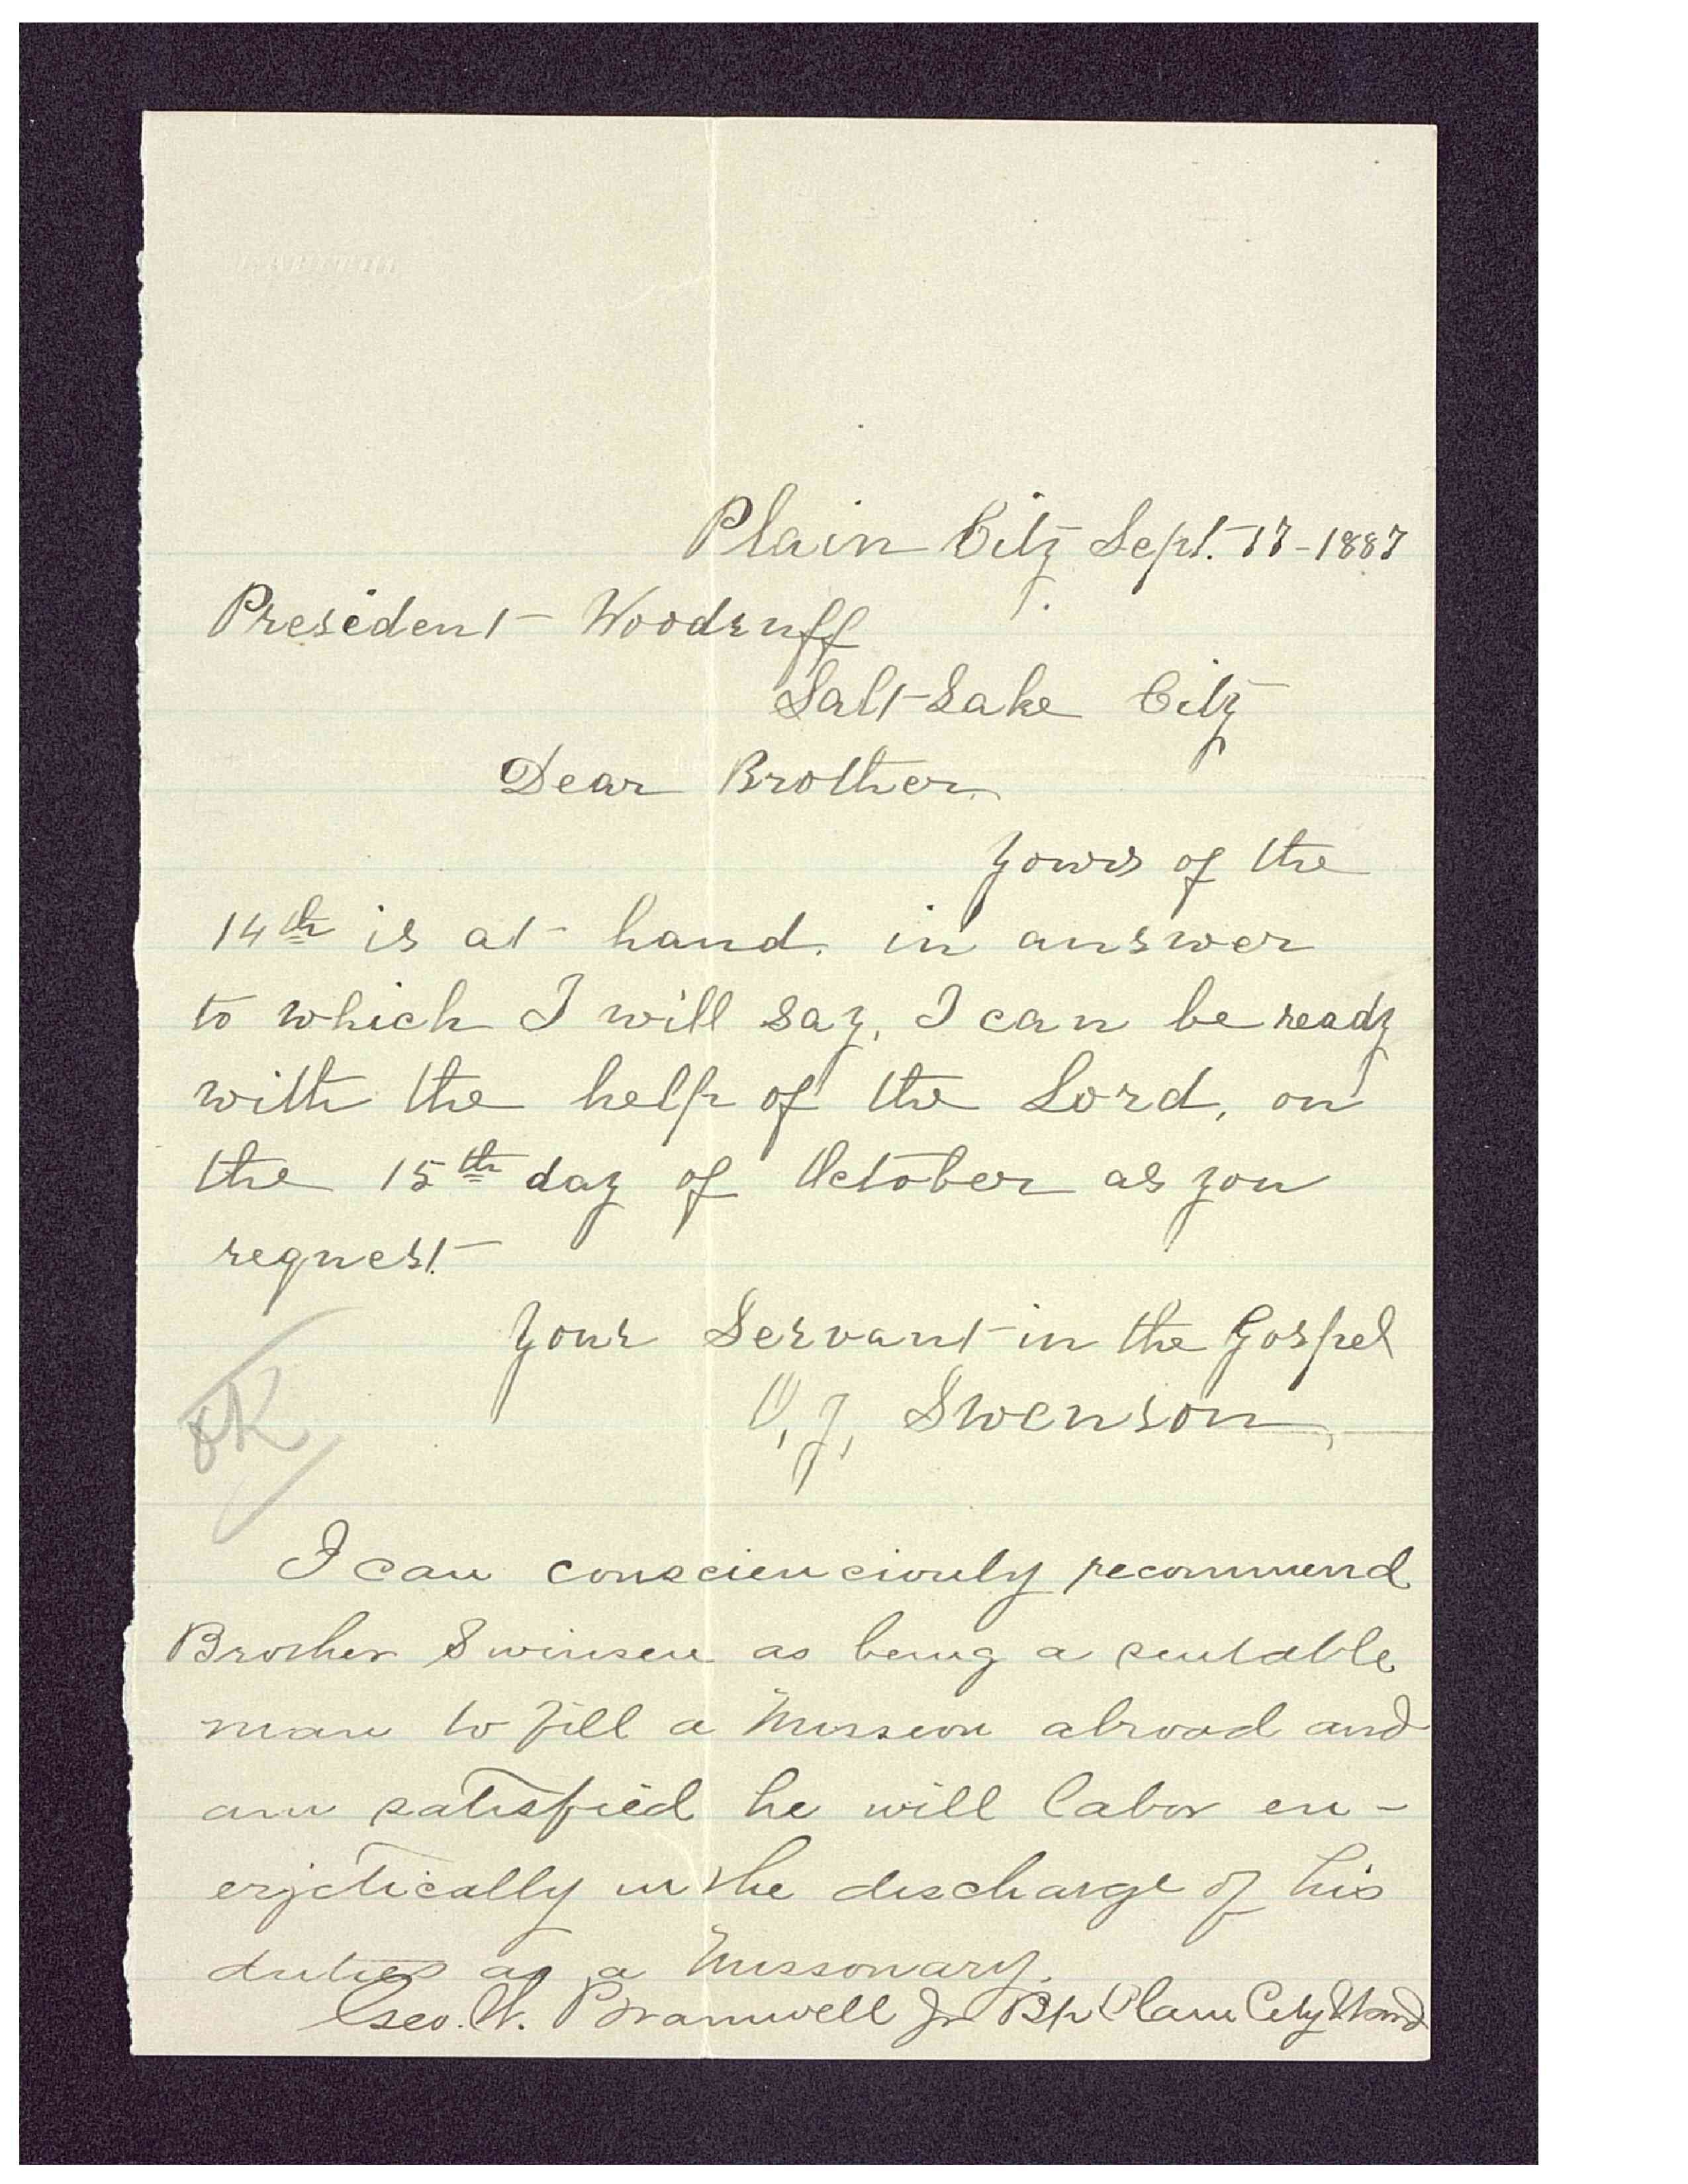 Plain City Sept. 17-1887
President Woodruff
Salt Lake City
Dear Brother
Yours of the
14th is at hand. in answer
to which I will say, I can be ready
with the help of the Lord, on
the 15th day of October as you
request.
Your Servant in the Gospel
O, J, Swenson
OK
I can conscienciously recommend
Brother Swinsen as being a suitable
man to fill a Mission abroad and
am satisfied he will labor en-
erjetically in the discharge of his
duties as a Missonary.
Geo. W. Bramwell Jr Bp Plain City Ward